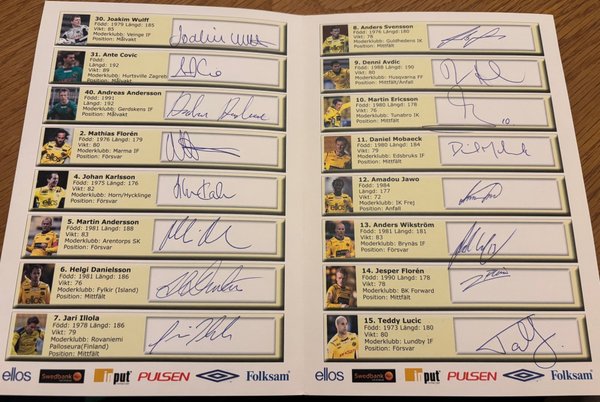 30. Joakim Wulff
Född: 1979 Längd: 185
Vikt: 85
Moderklubb: Veinge IF
Position: Målvakt
31. Ante Covic
Född:
Längd: 192
Vikt: 89
Moderklubb: Hurtsville Zagreb
Position: Målvakt
40. Andreas Andersson
Född: 1991
Längd: 192
Moderklubb: Gerdskens IF
Position: Målvakt
2. Mathias Florén
Född: 1976 Längd: 179
Vikt: 80
Moderklubb: Marma IF
Position: Försvar
4. Johan Karlsson
Född: 1975 Längd: 176
Vikt: 82
Moderklubb: Horn/Hycklinge
Position: Försvar
5. Martin Andersson
Född: 1981 Längd: 188
Vikt: 82
Moderklubb: Arentorps SK
Position: Försvar
6. Helgi Danielsson
Född: 1981 Längd: 186
Vikt: 76
Moderklubb: Fylkir (Island)
Position: Mittfält
7. Jari Illola
Född: 1978 Längd: 186
Vikt: 79
Moderklubb: Rovaniemi
Palloseura(Finland)
Position: Mittfält
ellos Swedbank input PULSEN UMBRO Folksam
8. Anders Svensson
Född: 1976 Längd: 178
Vikt: 80
Moderklubb: Guldhedens IK
Position: Mittfält
9. Denni Avdic
Född: 1988 Längd: 190
Vikt: 80
Moderklubb: Husqvarna FF
Position: Mittfält/Anfall
10. Martin Ericsson
Född: 1980 Längd: 178
Vikt: 76
Moderklubb: Tunabro IK
Position: Mittfält
10
11. Daniel Mobaeck
Född: 1980 Längd: 184
Vikt: 79
Moderklubb: Edsbruks IF
Position: Mittfält
12. Amadou Jawo
Född: 1984
Längd: 177
Vikt: 72
Moderklubb: IK Frej
Position: Anfall
13. Anders Wikström
Född: 1981 Längd: 181
Vikt: 83
Moderklubb: Brynäs IF
Position: Försvar
14. Jesper Florén
Född: 1990 Längd: 178
Vikt: 78
Moderklubb: BK Forward
Position: Mittfält
15. Teddy Lucic
Född: 1973 Längd: 180
Vikt: 80
Moderklubb: Lundby IF
Position: Försvar
ellos Swedbank input PULSEN UMBRO Folksam